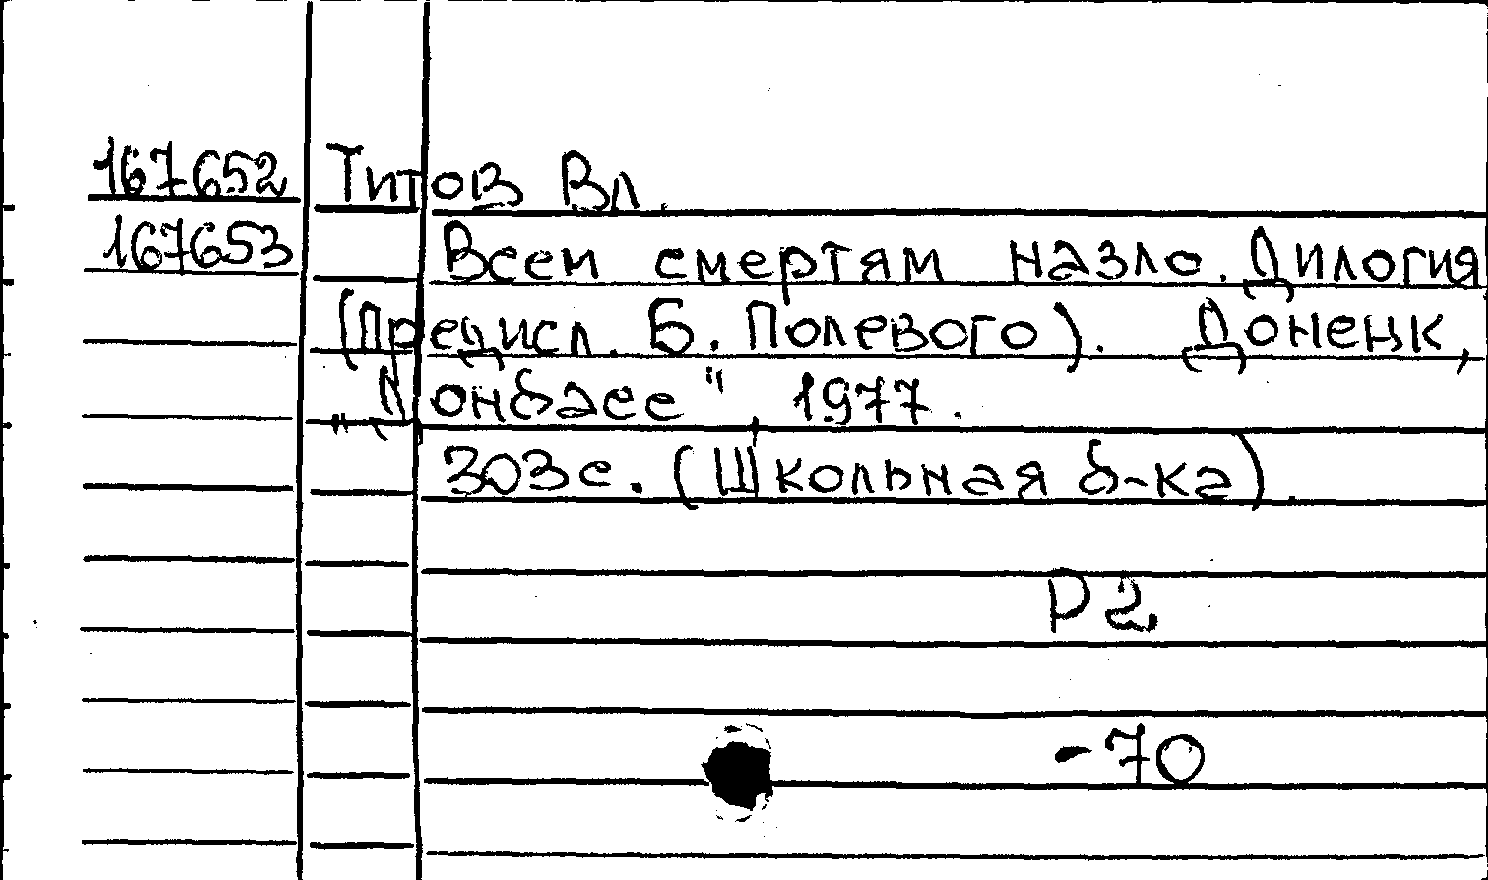 167652 Титов Вл.
167653 Всем смертям назло. Дилогия
(Предисл. Б. Полевого). Донецк,
„Донбасс", 1977.
303с. (Школьная б-ка).
Р2
-70